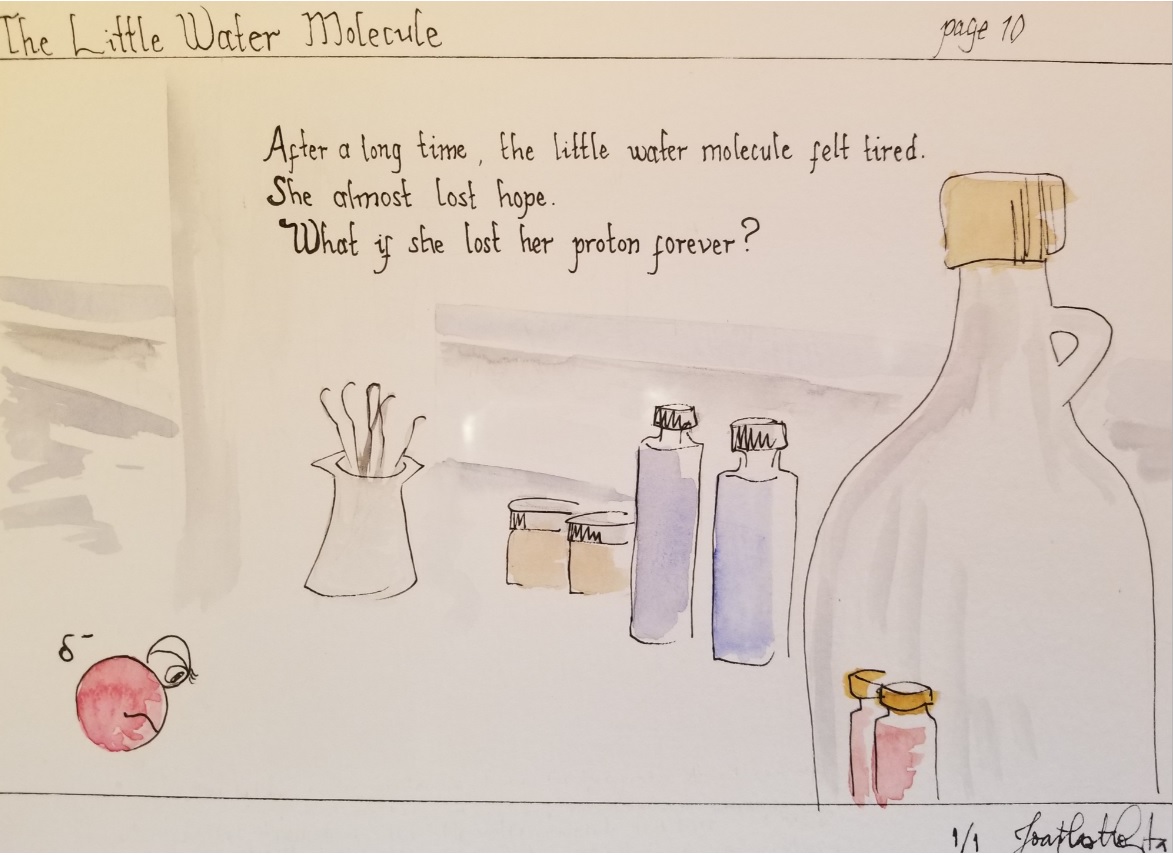 The Little Water Molecule
page 10
After a long time, the little water molecule felt tired.
She almost lost hope.
What if she lost her proton forever?
δ-
1/1